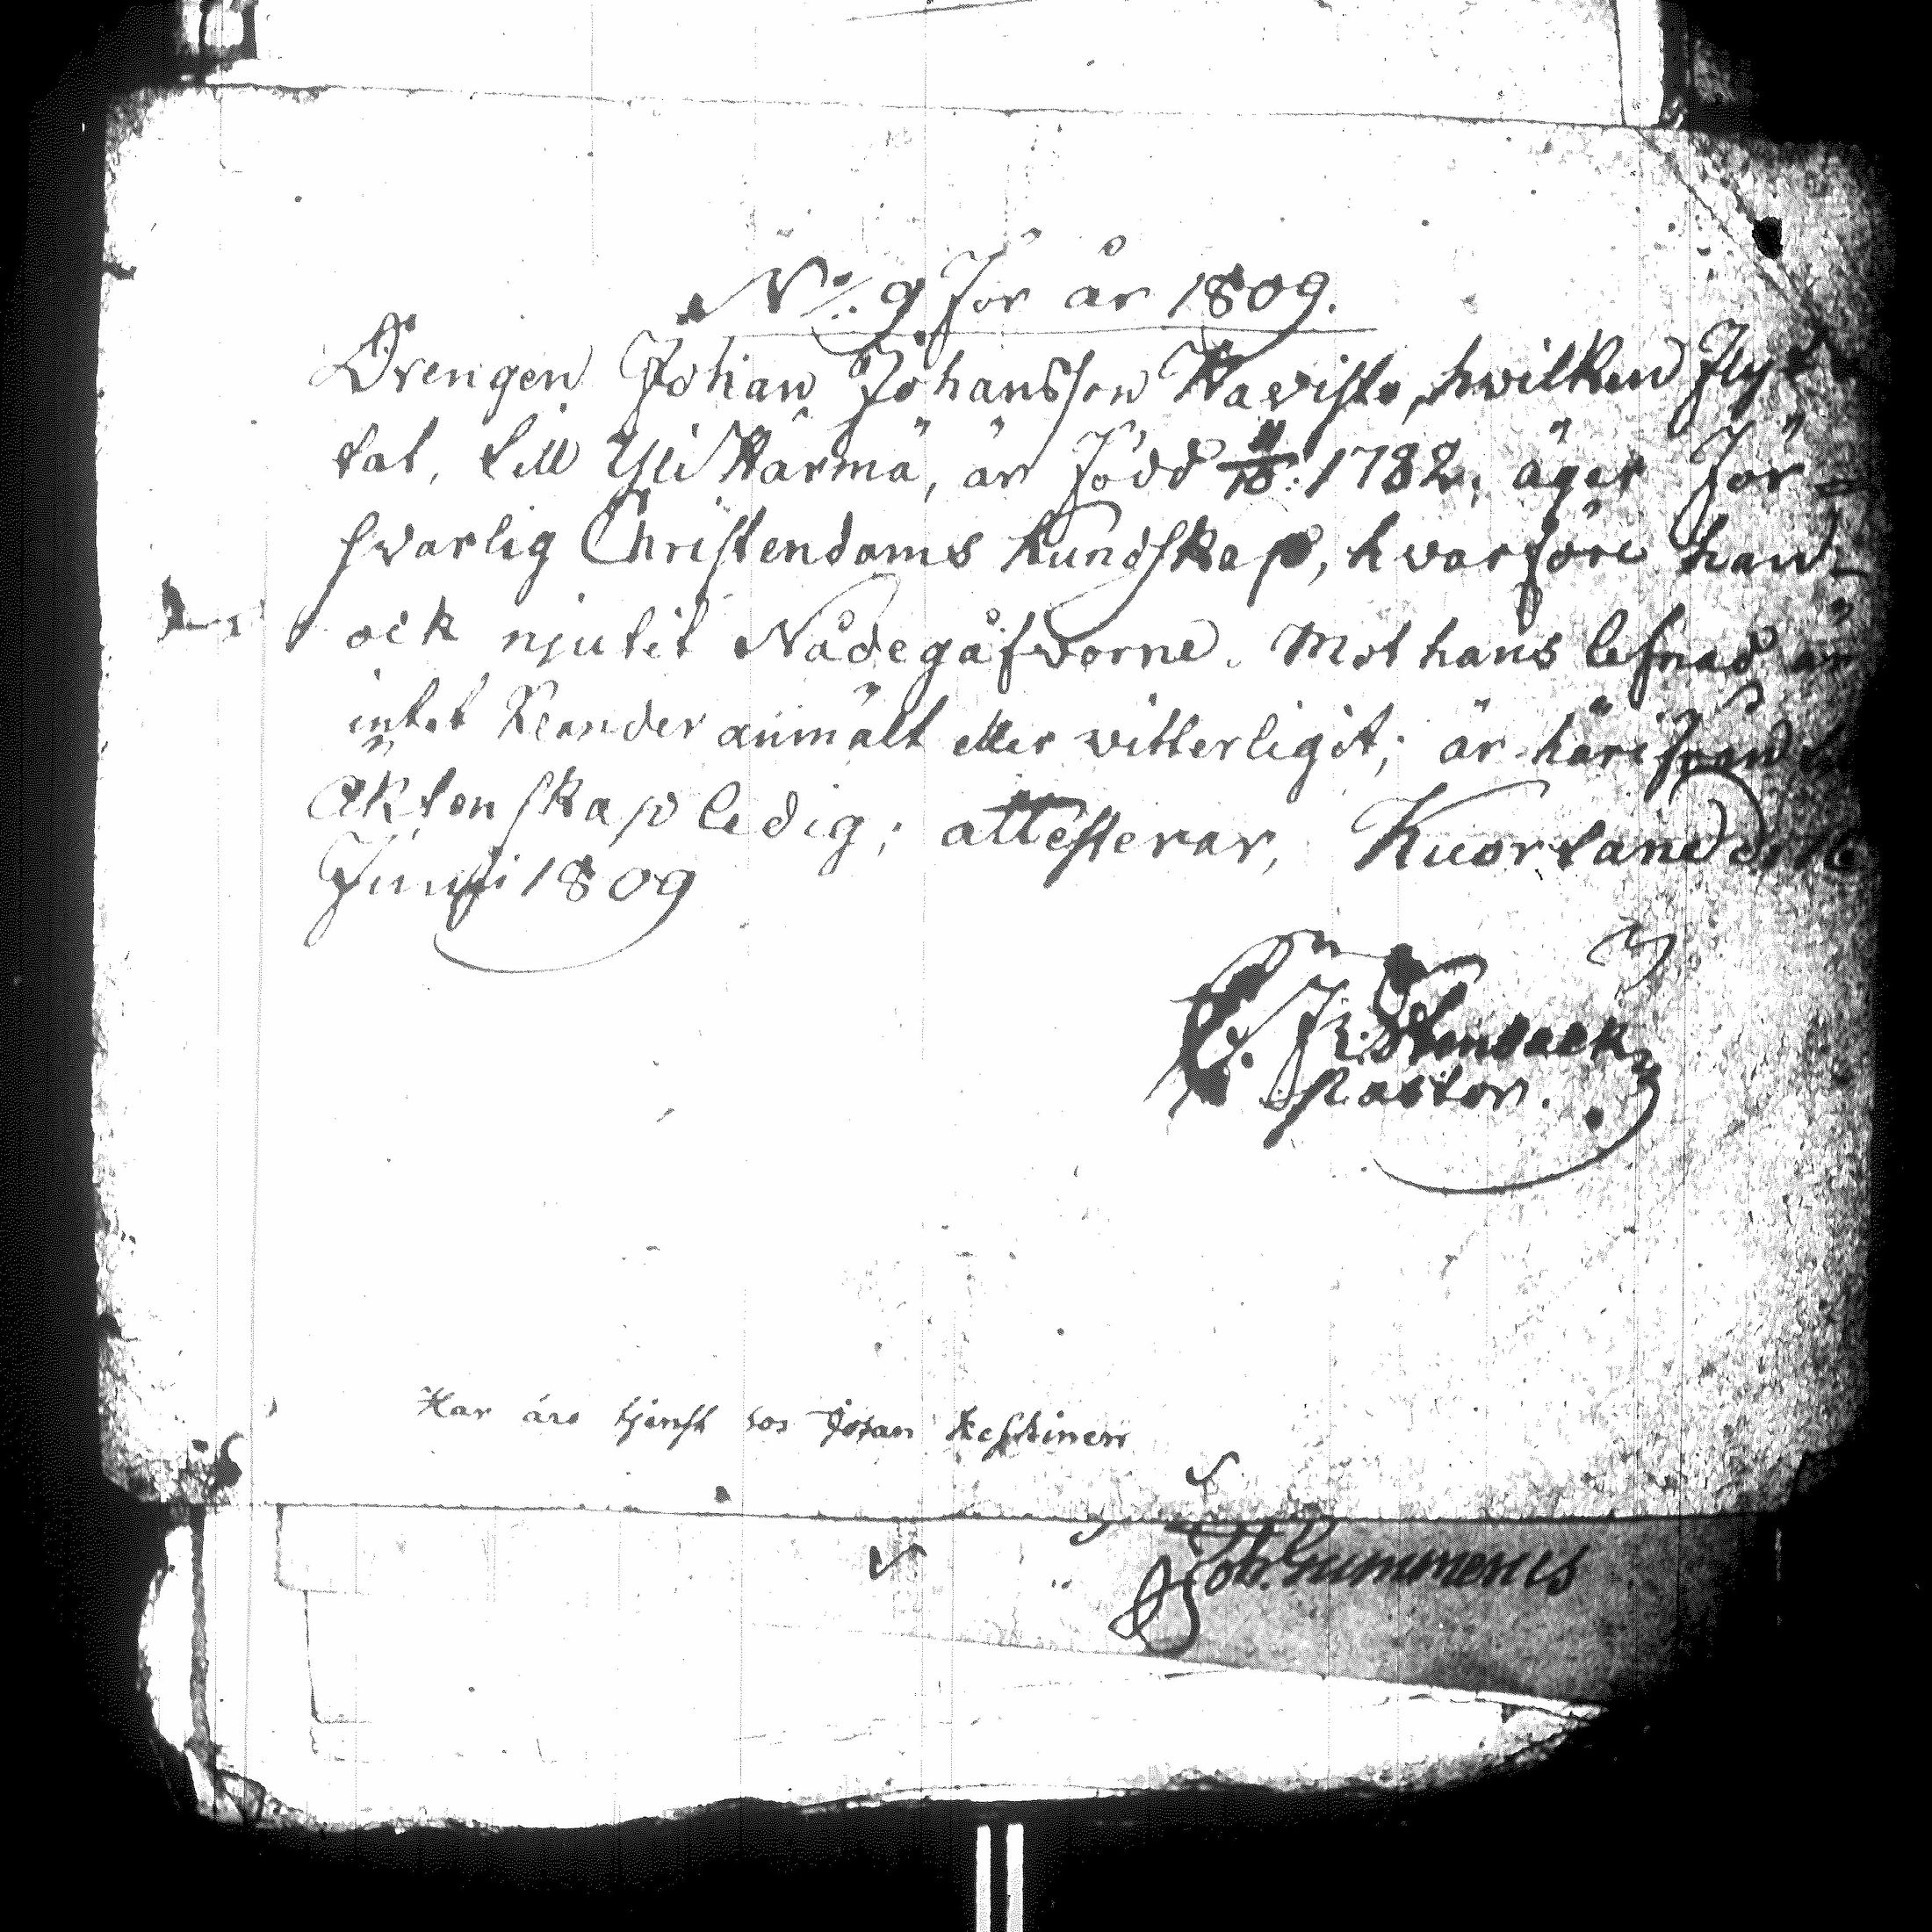 N:o 9. för år 1809.
Drengen Johan Johansson Kavisto, hwilken flyt
tat, till Ylikärmä, är född 11/10: 1782, äger för=
svarlig Christendoms kundskap, hvarföre han
ock njutit Nådegåfvorne. Mot hans lefnad är
intet klander anmält eller witterligit; är härifrån
Äktenskap ledig; attesterar, Kuortane d. 16
Junii 1809
C. Fr. Stenbäck
Pastor.
Har års tjenst hos Johan Keskinen
Joh. Gummerus